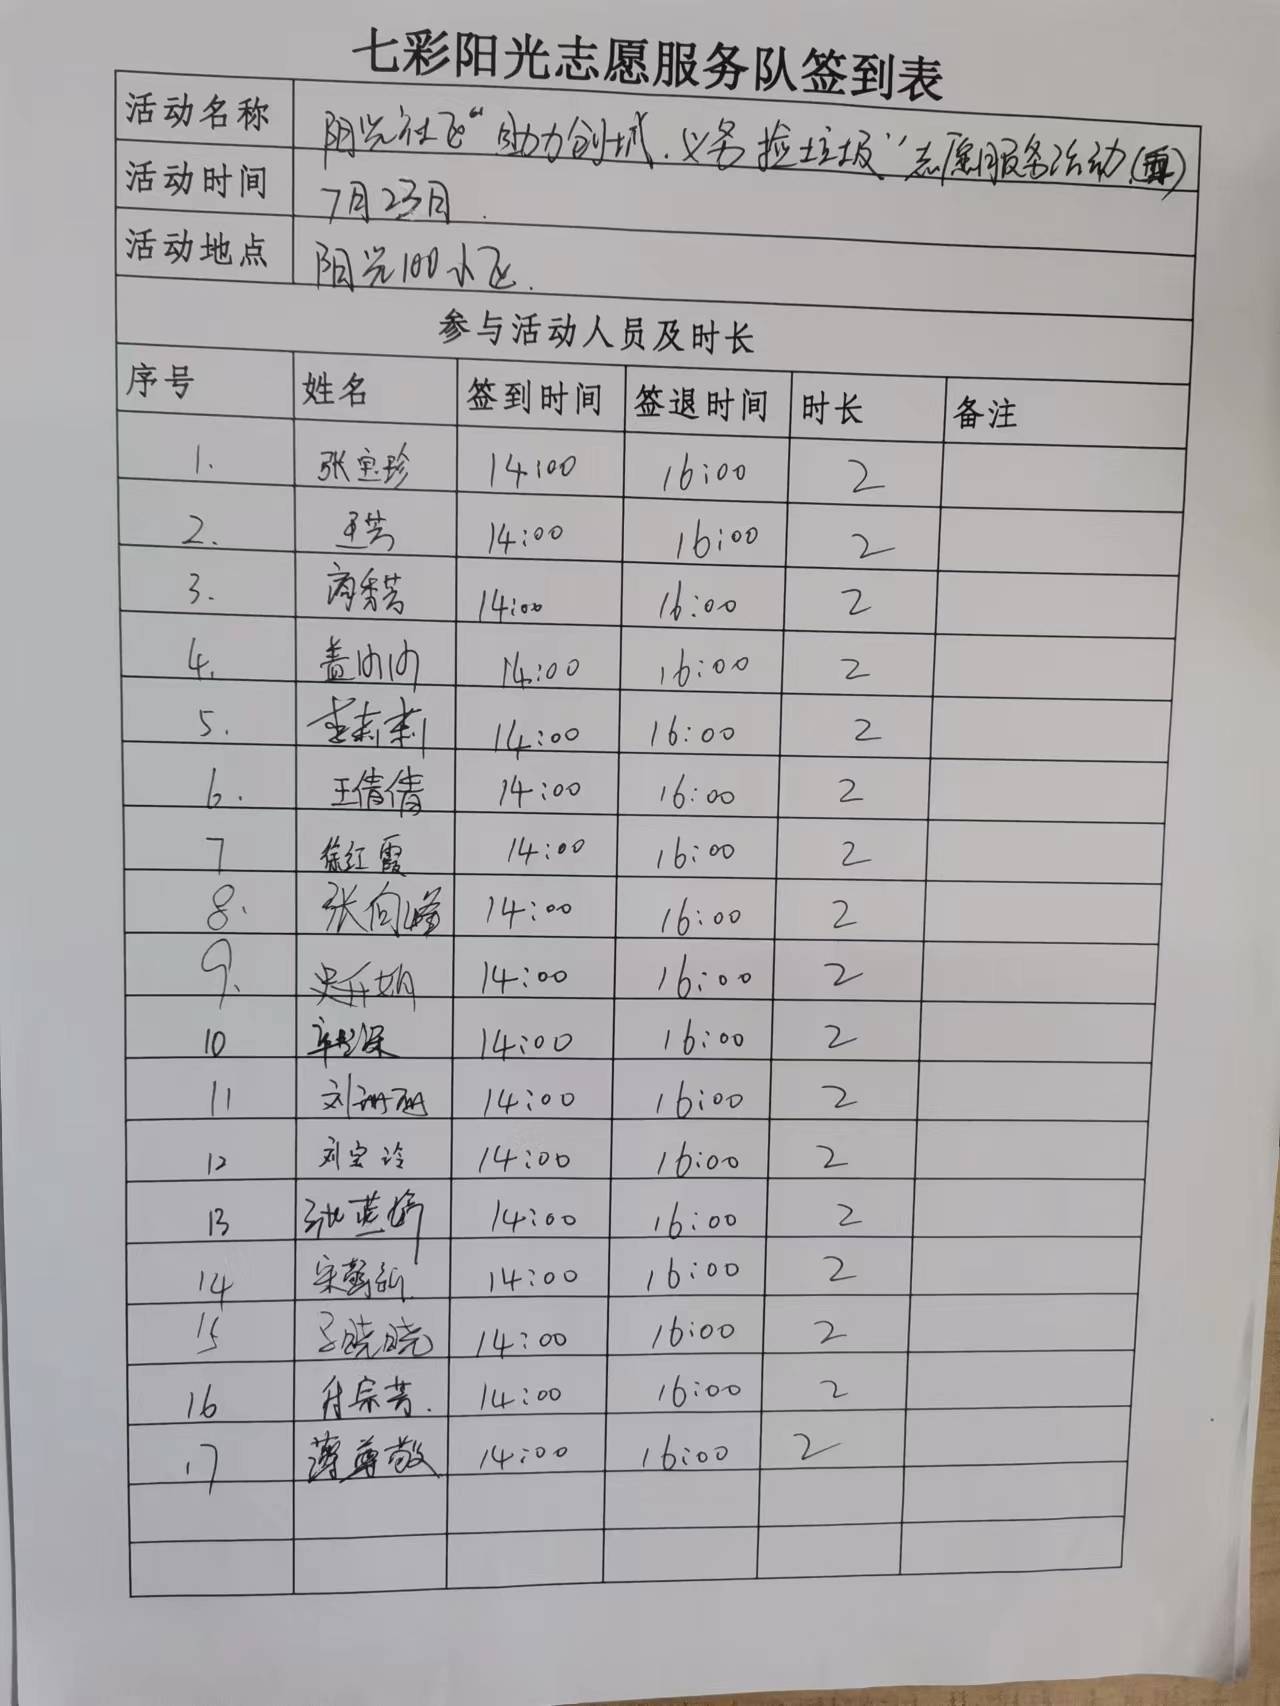 七彩阳光志愿服务队签到表
活动名称 阳光社区“助力创城,义务捡垃圾”志愿服务活动
活动时间 7月23日.
活动地点 阳光100小区.
参与活动人员及时长
序号 姓名 签到时间 签退时间 时长 备注
1. 张宝珍 14:00 16:00 2
2. 王芸 14:00 16:00 2
3. 14:00 16:00 2
4. 盖 14:00 16:00 2
5. 李莉莉 14:00 16:00 2
6. 王倩倩 14:00 16:00 2
7 徐红霞 14:00 16:00 2
8. 张向峰 14:00 16:00 2
9. 史开娟 14:00 16:00 2
10 14:00 16:00 2
11 刘珊珊 14:00 16:00 2
12 刘宝玲 14:00 16:00 2
13 14:00 16:00 2
14 宋 14:00 16:00 2
15 晓晓 14:00 16:00 2
16 付宗芳. 14:00 16:00 2
17 薄尊敬 14:00 16:00 2